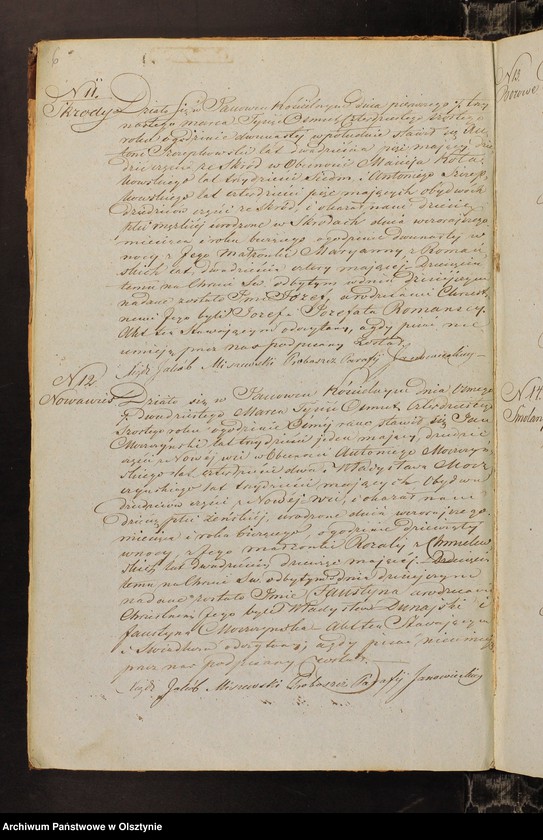 6
N 11.
Skrody
Działo się w Janowcu Kościelnym dnia pierwszego
Marca Tysiąc Osmset Czterdziestego Szóstego
roku o godzinie dwunastej w południe stawił się
lat dwadzieścia pięć mający
dzic części ze Skrod w Obecności Macieja Koła
kowskiego lat trzydzieści Siedm i Antoniego
kowskiego lat czterdzieści pięć mających obydwóch
dziedziców części ze Skrod, i okazał nam dziecię
płci męzkiej urodzone w Skrodach dnia wczorajszego
miesiąca i roku bieżącego o godzinie dwunastej w
nocy z Jego Małżonki Maryanny z Roman
skich lat dwadzieścia cztery mającej Dziecięciu
temu na Chrzcie Sw. odbytym w dniu dzisiejszym
nadane zostało Imie Józef, a rodzicami Chrzest
nemi Jego byli Józef i Jozefata Romanscy.
Akt ten stawającym odczytany, a gdy pisać nie
umieją przez nas podpisany został.
Xiądz Jakób Miszewski Proboszcz Parafij Janowieckiej
N 12.
Nowawieś
Działo się w Janowcu Kościelnym dnia Osmego
Dwudziestego Marca Tysiąc Osmset Czterdziestego
Szostego roku o godzinie Osmej rano stawił się Jan
Moczyński lat trzydzieści jeden mający, dziedzic
części w Nowej wsi w Obecności Antoniego Moczyń
skiego lat czterdzieści dwa i Władysława Mocz
czyńskiego lat trzydzieści mających Obydwu
dziedziców części z Nowej wsi, i okazał nam
Dziecię płci żeńskiej, urodzone dnia wczorajszego
miesiąca i roku bieżącego, o godzinie dziewiątej
w nocy, z Jego małżonki Rozalij z Chmielew
skich lat dwadzieścia mającej. Dziecięciu
temu na Chrzcie Sw. odbytym w dniu dzisiejszym
nadane zostało Imie Faustyna a rodzicami
Chrzestnemi Jego byli Władysław Dunajski i
Faustyna Moczyńska Akt ten Stawającym
i Świadkom odczytany, a gdy pisać nieumieją
przez nas podpisany został.
Xiądz Jakób Miszewski Proboszcz Parafij Janowieckiej
N 13
N 14.
Archiwum Państwowe w Olsztynie